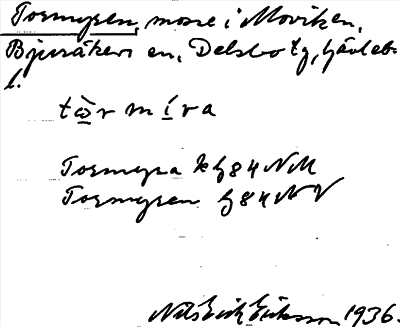 Tormyren, mosse i Moviken,
Bjuråkers sn, Delsbo tg, Gävleb.
l.
tὼr mí̱ra
Tormyra kg 84 NM
Tormyren g 84 NV
Nils Erik Eriksson 1936.